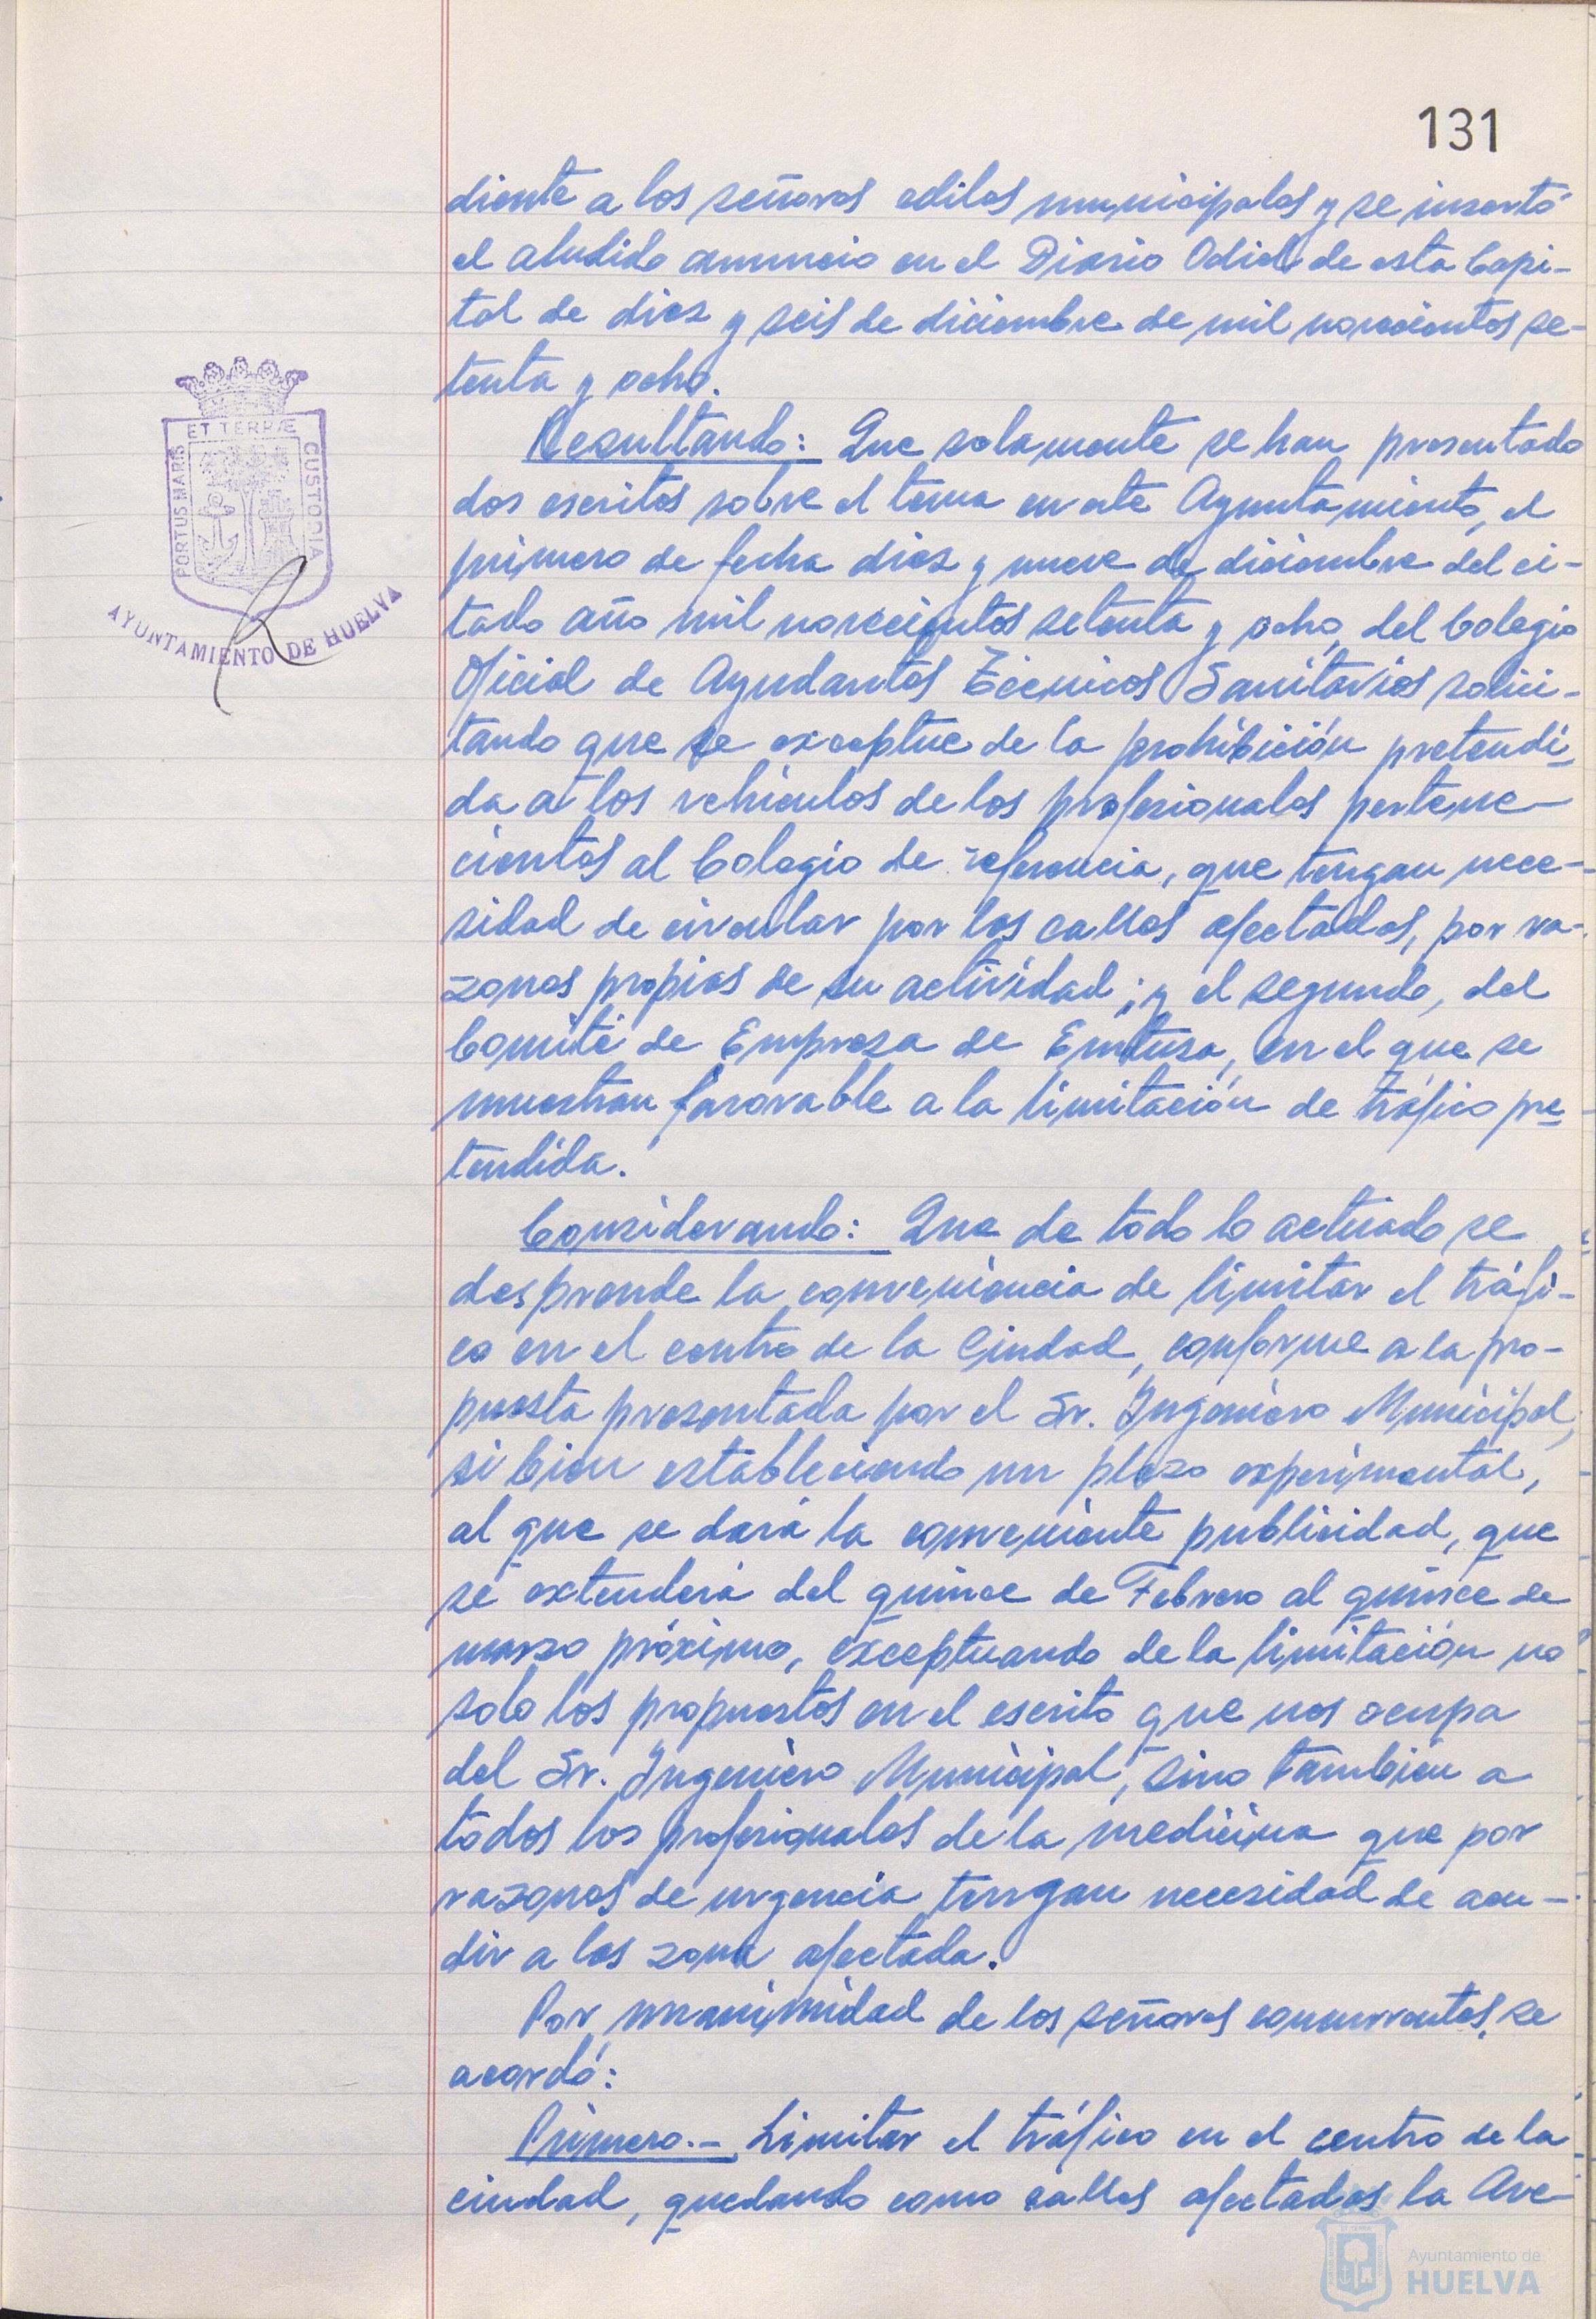 131
diente a los señores ediles municipales y se insertó
el aludido anuncio en el Diario Odiel de esta Capi-
tal de diez y seis de diciembre de mil novecientos se-
tenta y ocho.
Resultando: Que solamente se han presentado
dos escritos sobre el tema en este Ayuntamiento, el
primero de fecha diez y nueve de diciembre del ci-
tado año mil novecientos setenta y ocho, del Colegio
Oficial de Ayudantes Técnicos Sanitarios solici-
tando que se exceptue de la prohibición pretendi-
da a los vehículos de los profesionales pertene-
cientes al Colegio de referencia, que tengan nece-
sidad de circular por las calles afectadas, por ra-
zones propias de su actividad; y el segundo, del
Comité de Empresa de Emtusa, en el que se
muestran favorable a la limitación de tráfico pre-
tendida.
Considerando: Que de todo lo actuado se
desprende la conveniencia de limitar el tráfi-
co en el centro de la Ciudad, conforme a la pro-
puesta presentada por el Sr. Ingeniero Municipal,
si bien estableciendo un plazo experimental,
al que se dará la conveniente publicidad, que
se extenderá del quince de Febrero al quince de
marzo próximo, exceptuando de la limitación no
solo los propuestos en el escrito que nos ocupa
del Sr. Ingeniero Municipal, sino también a
todos los profesionales de la medicina que por
razones de urgencia tengan necesidad de acu-
dir a las zona afectada.
Por unanimidad de los señores concurrentes, se
acordó:
Primero.- Limitar el tráfico en el centro de la
ciudad, quedando como calles afectadas la Ave-
PORTUS MARIS ET TERRÆ CUSTODIA
AYUNTAMIENTO DE HUELVA
Ayuntamiento de
HUELVA